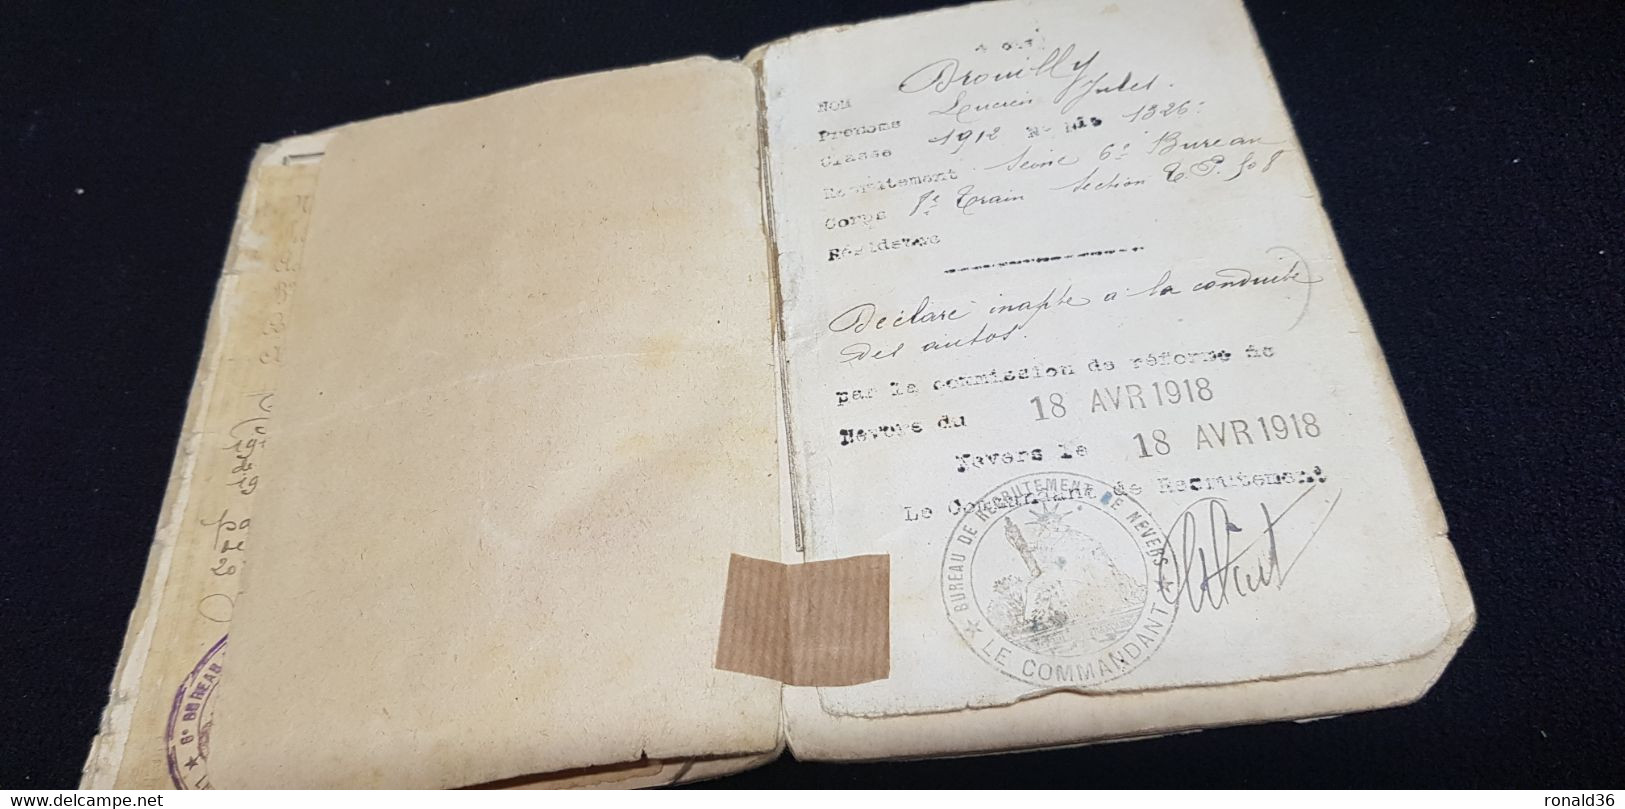 Nom Drouilly
Prénoms Lucien Jules.
Classe 1912 N° Mle 1326.
Recrutement Seine 6e Bureau
Corps 8e Train Section T.P. 508
Résidence
Déclaré inapte à la conduite
des autos.
par la commission de réforme de
Nevers du 18 AVR 1918
Nevers le 18 AVR 1918
Le Commandant de Recrutement
BUREAU DE RECRUTEMENT DE NEVERS
★ LE COMMANDANT ★
★ 6e BUREAU
delcampe.net
ronald36